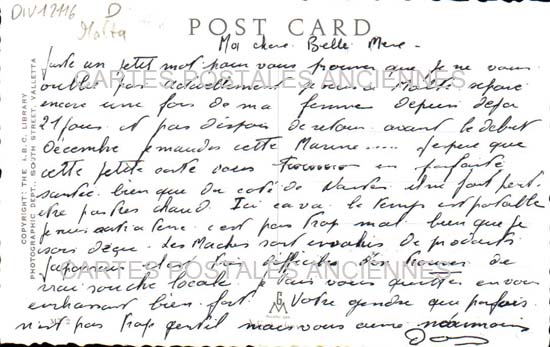 DIV12116
D
Malta
POST CARD
Ma chere Belle Mere -
Juste un petit mot pour vous prouver que je ne vous
oublie pas actuellement je suis a Malte separé
encore une fois de ma femme depuis deja
21 jours et pas d'espoir de retour avant le debut
Décembre je maudis cette Marine..... J'espere que
cette petite carte vous trouvera en parfaite
santée bien que du coté de Nantes il ne fait peut-
etre pas tres chaud Ici ca va le temps est potable
je suis a terre c'est pas trop mal bien que je
sois deçu. Les Maches sont envahis de produits
Japonnais et c'est difficile de trouver de
vrai souche locale je vais vous quitter en vous
embrassant bien fort Votre gendre qui parfois
n'est pas trop gentil mais vous aime néanmoins
CARTES POSTALES ANCIENNES
CARTES POSTALES ANCIENNES
CARTES POSTALES ANCIENNES
COPYRIGHT: THE L.B.C. LIBRARY
PHOTOGRAPHIC DEPT., SOUTH STREET, VALLETTA